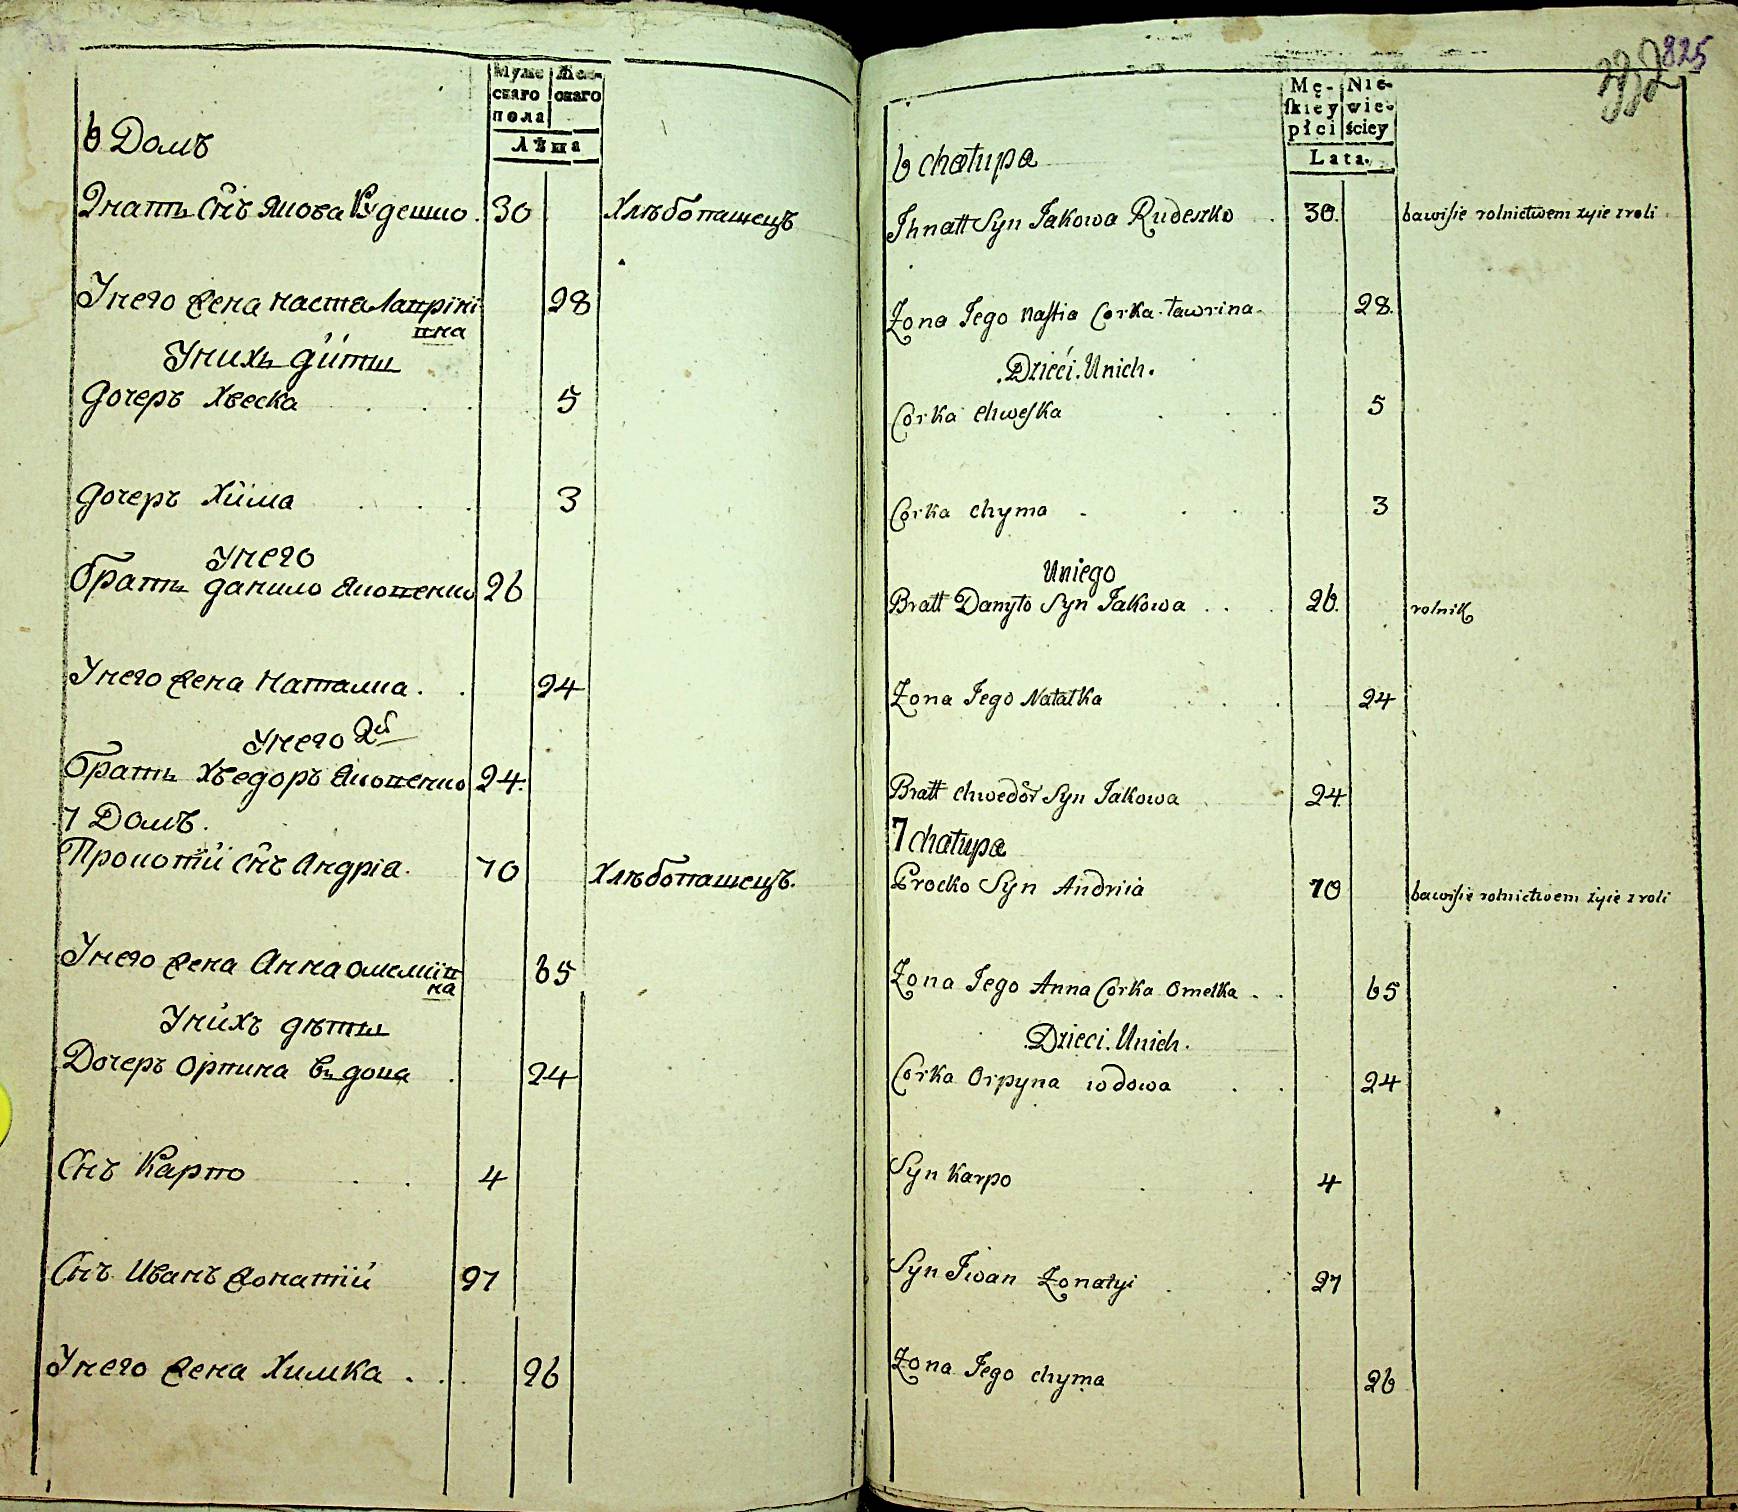 Муже
скаго
пола
Жен-
скаго
Лѣта
6 Домъ
Игнатъ Сн̃ъ Якова Рудешко . 30 Хлѣбопашецъ
Унего Жена Наста Лаврїнї
вна 28
Унихъ дїти
Дочеръ Хвеска . . . 5
Дочеръ Хїма . . . 3
Унего
Братъ данило Яковенко 26
Унего Жена Наталка . . 24
Унего 2й
Братъ Хведоръ Яковенко 24.
7 Домъ.
Прокотїй Сн̃ъ Андрїа. 70 Хлѣбопашецъ.
Унего Жена Анна омелїв
на 65
Унїхъ дѣти
Дочеръ орпина вдова . 24
Сн̃ъ Карпо . . 4
Снъ Иванъ Жонатїй 27
Унего Жена Химка . . . 26
825
Mę-
skiey
płci
Nie-
wie-
ściey
Lata.
6 chałupa
Ihnatt Syn Jakowa Rudeszko . 30. bawi się rolnictwem zyie z roli
Zona Jego Nastia Corka ławrina. 28.
.Dzieci. Unich.
Corka Chweska . . . 5
Corka chyma . . . . 3
Uniego
Bratt Danyło Syn Jakowa . . . 26. rolnik
Zona Jego Natałka . . . 24
Bratt Chwedor Syn Jakowa . . 24
7 chałupa
Procko Syn Andriia 70 bawi się rolnictwem żyie z roli
Zona Jego Anna Corka Omelka . . 65
.Dzieci. Unich.
Corka Orpyna wdowa . . 24
Syn Karpo . . 4
Syn Jwan Zonatyi . . 27
Zona Jego chyma 26